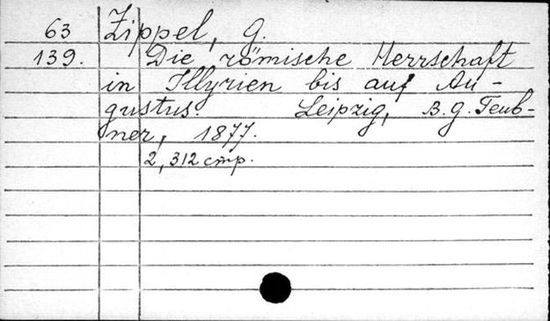 63 Zippel, G.
139. Die römische Herrschaft
in Illyrien bis auf Au-
gustus. Leipzig, B.G. Teub-
ner, 1877.
2, 312 стр.